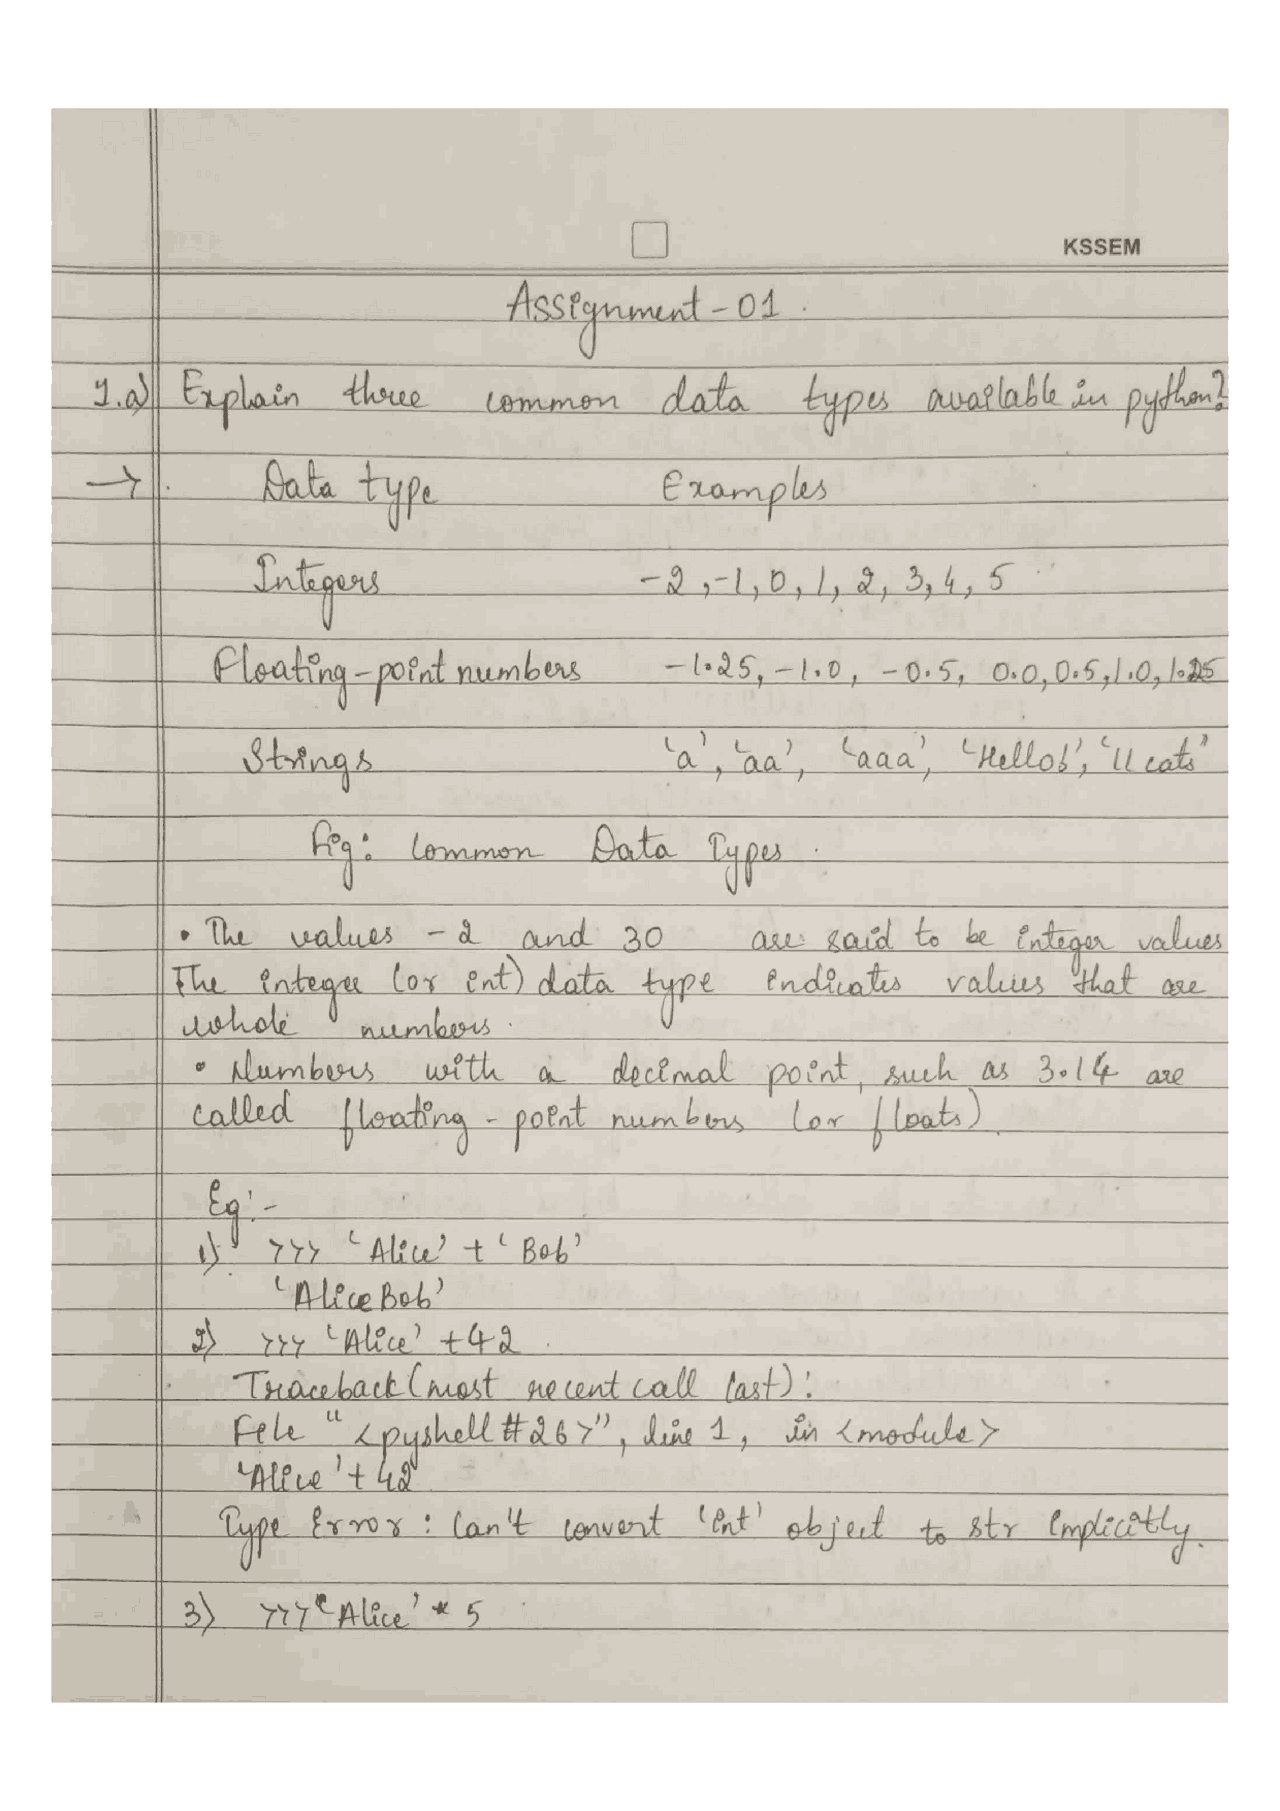 KSSEM
Assignment-01.
1.a) Explain three common data types available in python?
→. Data type Examples
Integers -2,-1,0,1,2,3,4,5
Floating-point numbers -1.25, -1.0, -0.5, 0.0,0.5,1.0,1.25
Strings 'a', 'aa', 'aaa', 'Hello!', '11 cats'
Fig: Common Data Types.
• The values -2 and 30 are said to be integer values
The integer (or int) data type indicates values that are
whole numbers.
• Numbers with a decimal point, such as 3.14 are
called floating-point numbers (or floats).
Eg:-
1) >>> 'Alice' + 'Bob'
'AliceBob'
2) >>> 'Alice' +42.
Traceback (most recent call last):
File "<pyshell#26>", line 1, in <module>
'Alice'+42
Type Error: Can't convert 'int' object to str implicitly.
3) >>> 'Alice' * 5